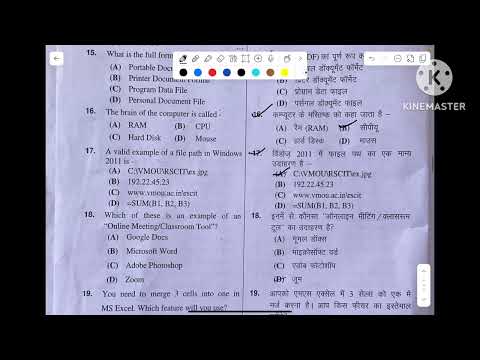 15. What is the full form
(A) Portable Docu
(B) Printer Document Format
(C) Program Data File
(D) Personal Document File
16. The brain of the computer is called -
(A) RAM (B) CPU
(C) Hard Disk (D) Mouse
17. A valid example of a file path in Windows
2011 is –
(A) C:\VMOU\RSCIT\ex.jpg
(B) 192.22.45.23
(C) www.vmou.ac.in/escit
(D) =SUM(B1, B2, B3)
18. Which of these is an example of an
"Online Meeting/Classroom Tool"?
(A) Google Docs
(B) Microsoft Word
(C) Adobe Photoshop
(D) Zoom
19. You need to merge 3 cells into one in
MS Excel. Which feature will you use?
DF) का पूर्ण रूप क
डॉक्यूमेंट फॉर्मेट
डॉक्यूमेंट फॉर्मेट
(C) प्रोग्राम डेटा फाइल
(D) पर्सनल डॉक्यूमेंट फाइल
16. कम्प्यूटर के मस्तिष्क को कहा जाता है -
(A) रैम (RAM) (B) सीपीयू
(C) हार्ड डिस्क (D) माउस
17. विंडोज 2011 में फाइल पथ का एक मान्य
उदाहरण है –
(A) C:\VMOU\RSCIT\ex.jpg
(B) 192.22.45.23
(C) www.vmou.ac.in/escit
(D) =SUM(B1, B2, B3)
18. इनमें से कौनसा "ऑनलाइन मीटिंग/क्लासरूम
टूल" का उदाहरण है?
(A) गूगल डॉक्स
(B) माइक्रोसॉफ्ट वर्ड
(C) एडोब फोटोशॉप
(D) जूम
19. आपको एमएस एक्सेल में 3 सेल्स को एक में
मर्ज करना है। आप किस फीचर का इस्तेमाल
KINEMASTER